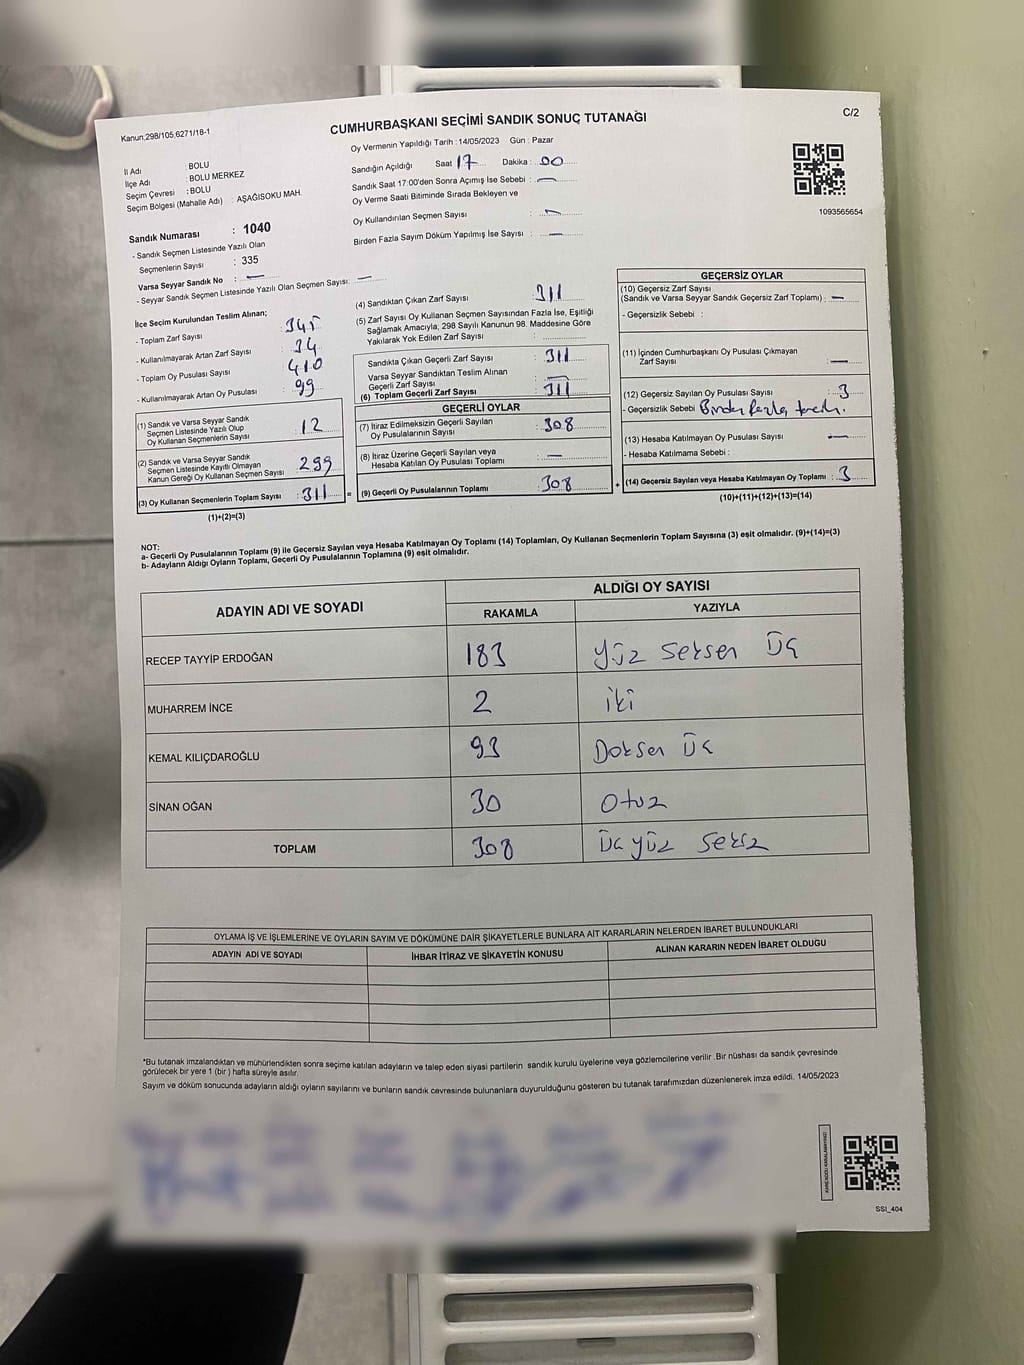 Kanun:298/105;6271/18-1
CUMHURBAŞKANI SEÇİMİ SANDIK SONUÇ TUTANAĞI
C/2
Oy Vermenin Yapıldığı Tarih : 14/05/2023 Gün : Pazar
İl Adı : BOLU
İlçe Adı : BOLU MERKEZ
Seçim Çevresi : BOLU
Seçim Bölgesi (Mahalle Adı) : AŞAĞISOKU MAH.
Sandığın Açıldığı Saat 17 Dakika : 00
Sandık Saat 17:00'den Sonra Açımış İse Sebebi : —
Oy Verme Saati Bitiminde Sırada Bekleyen ve
Oy Kullandırılan Seçmen Sayısı : —
Birden Fazla Sayım Döküm Yapılmış İse Sayısı : —
1093565654
Sandık Numarası : 1040
- Sandık Seçmen Listesinde Yazılı Olan
Seçmenlerin Sayısı : 335
Varsa Seyyar Sandık No : —
- Seyyar Sandık Seçmen Listesinde Yazılı Olan Seçmen Sayısı: —
İlçe Seçim Kurulundan Teslim Alınan;
- Toplam Zarf Sayısı : 345
- Kullanılmayarak Artan Zarf Sayısı : 34
- Toplam Oy Pusulası Sayısı : 410
- Kullanılmayarak Artan Oy Pusulası : 99
(1) Sandık ve Varsa Seyyar Sandık
Seçmen Listesinde Yazılı Olup
Oy Kullanan Seçmenlerin Sayısı : 12
(2) Sandık ve Varsa Seyyar Sandık
Seçmen Listesinde Kayıtlı Olmayan
Kanun Gereği Oy Kullanan Seçmen Sayısı : 299
(3) Oy Kullanan Seçmenlerin Toplam Sayısı : 311 =
(1)+(2)=(3)
(4) Sandıktan Çıkan Zarf Sayısı : 311
(5) Zarf Sayısı Oy Kullanan Seçmen Sayısından Fazla İse, Eşitliği
Sağlamak Amacıyla, 298 Sayılı Kanunun 98. Maddesine Göre
Yakılarak Yok Edilen Zarf Sayısı :
Sandıkta Çıkan Geçerli Zarf Sayısı : 311
Varsa Seyyar Sandıktan Teslim Alınan
Geçerli Zarf Sayısı : —
(6) Toplam Geçerli Zarf Sayısı : 311
GEÇERLİ OYLAR
(7) İtiraz Edilmeksizin Geçerli Sayılan
Oy Pusulalarının Sayısı : 308
(8) İtiraz Üzerine Geçerli Sayılan veya
Hesaba Katılan Oy Pusulası Toplamı : —
(9) Geçerli Oy Pusulalarının Toplamı : 308 +
GEÇERSİZ OYLAR
(10) Geçersiz Zarf Sayısı
(Sandık ve Varsa Seyyar Sandık Geçersiz Zarf Toplamı) : —
- Geçersizlik Sebebi :
(11) İçinden Cumhurbaşkanı Oy Pusulası Çıkmayan
Zarf Sayısı : —
(12) Geçersiz Sayılan Oy Pusulası Sayısı : 3
- Geçersizlik Sebebi : Birden fazla tercih.
(13) Hesaba Katılmayan Oy Pusulası Sayısı : —
- Hesaba Katılmama Sebebi :
(14) Geçersiz Sayılan veya Hesaba Katılmayan Oy Toplamı : 3
(10)+(11)+(12)+(13)=(14)
NOT:
a- Geçerli Oy Pusulalarının Toplamı (9) ile Geçersiz Sayılan veya Hesaba Katılmayan Oy Toplamı (14) Toplamları, Oy Kullanan Seçmenlerin Toplam Sayısına (3) eşit olmalıdır. (9)+(14)=(3)
b- Adayların Aldığı Oyların Toplamı, Geçerli Oy Pusulalarının Toplamına (9) eşit olmalıdır.
ADAYIN ADI VE SOYADI
ALDIĞI OY SAYISI
RAKAMLA YAZIYLA
RECEP TAYYİP ERDOĞAN 183 Yüz Seksen Üç
MUHARREM İNCE 2 iki
KEMAL KILIÇDAROĞLU 93 Doksan Üç
SİNAN OĞAN 30 Otuz
TOPLAM 308 Üçyüz Sekiz
OYLAMA İŞ VE İŞLEMLERİNE VE OYLARIN SAYIM VE DÖKÜMÜNE DAİR ŞİKAYETLERLE BUNLARA AİT KARARLARIN NELERDEN İBARET BULUNDUKLARI
ADAYIN ADI VE SOYADI İHBAR İTİRAZ VE ŞİKAYETİN KONUSU ALINAN KARARIN NEDEN İBARET OLDUGU
*Bu tutanak imzalandıktan ve mühürlendikten sonra seçime katılan adayların ve talep eden siyasi partilerin sandık kurulu üyelerine veya gözlemcilerine verilir .Bir nüshası da sandık çevresinde
görülecek bir yere 1 (bir ) hafta süreyle asılır.
Sayım ve döküm sonucunda adayların aldığı oyların sayılarını ve bunların sandık cevresinde bulunanlara duyurulduğunu gösteren bu tutanak tarafımızdan düzenlenerek imza edildi. 14/05/2023
KAREKODU KARALAMAYINIZ!
SSI_404